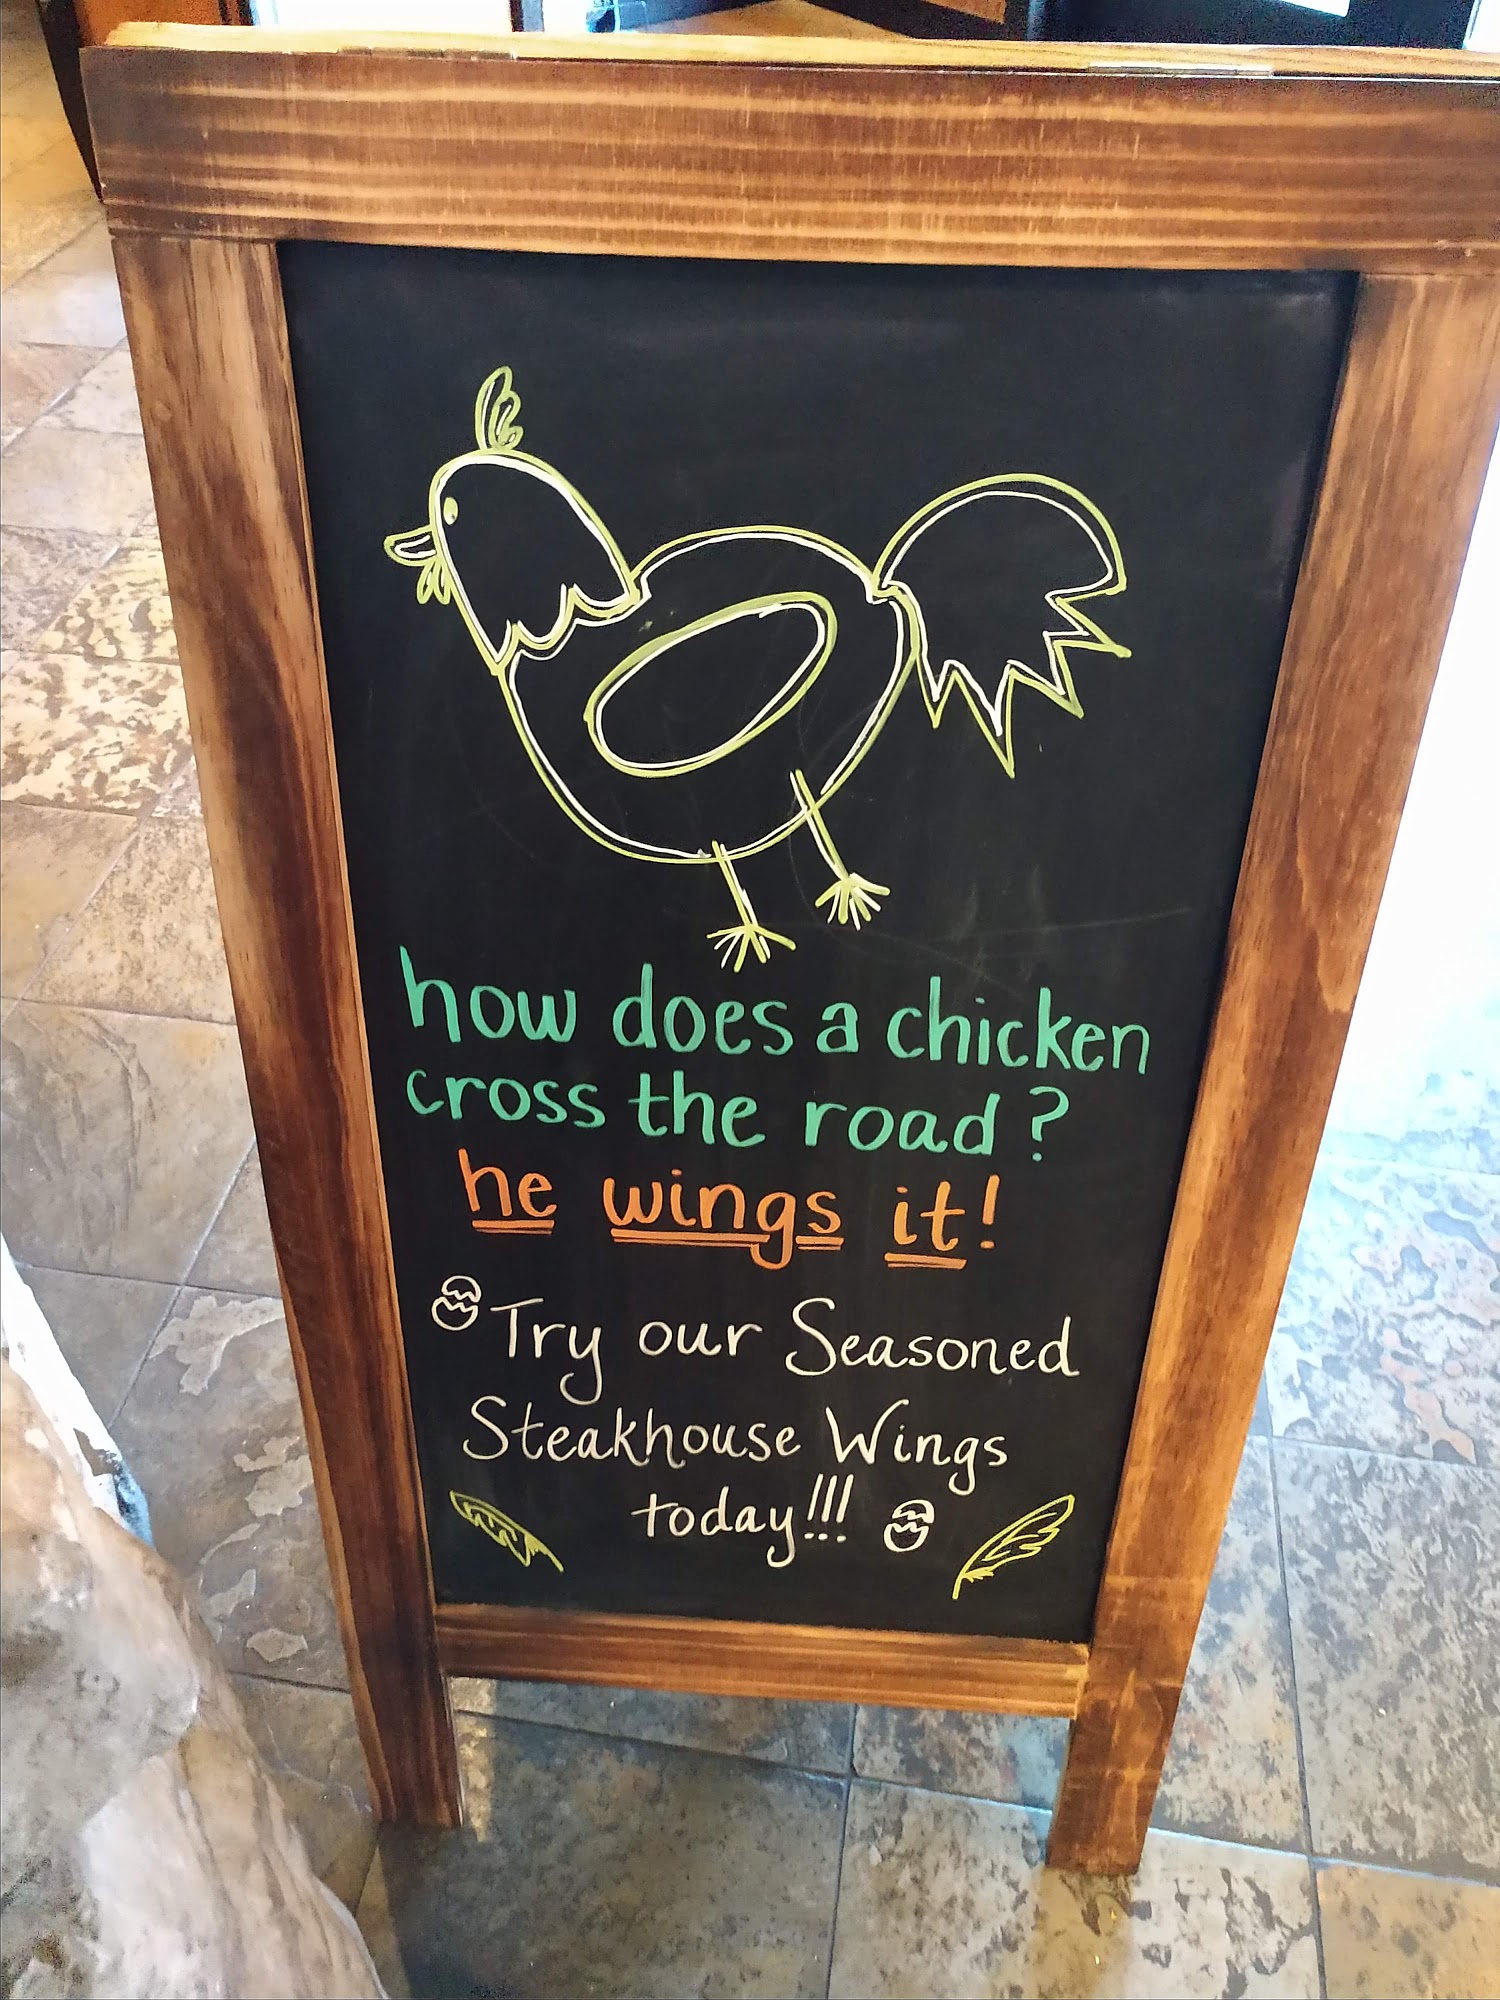 how does a chicken
cross the road?
he wings it!
Try our Seasoned
Steakhouse Wings
today!!!